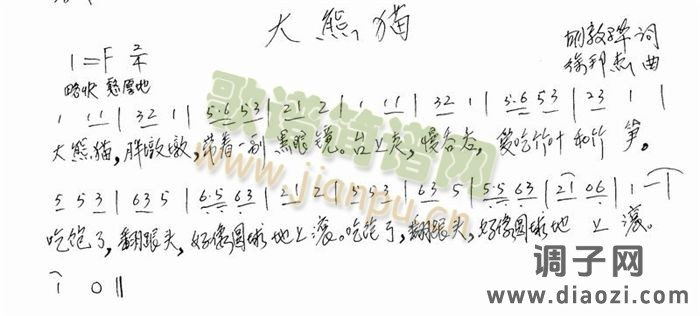 大熊猫
1=F 2/4
胡敦骅 词
徐邦杰 曲
略快 憨厚地
1 11 | 32 1 | 5·6 53 | 21 2 | 1 11 | 32 1 | 5·6 53 | 23 1 |
大熊猫，胖墩墩，带着一副黑眼镜。台上走，慢吞吞，爱吃竹叶和竹笋。
5 53 | 63 5 | 6·5 63 | 21 2 | 5 53 | 63 5 | 5·5 63 | 21 06 | 1 - |
吃饱了，翻跟头，好像圆球地上滚。吃饱了，翻跟头，好像圆球地上滚。
1 0 ‖
歌谱简谱网
www.jianpu.cn
调子网
www.diaozi.com